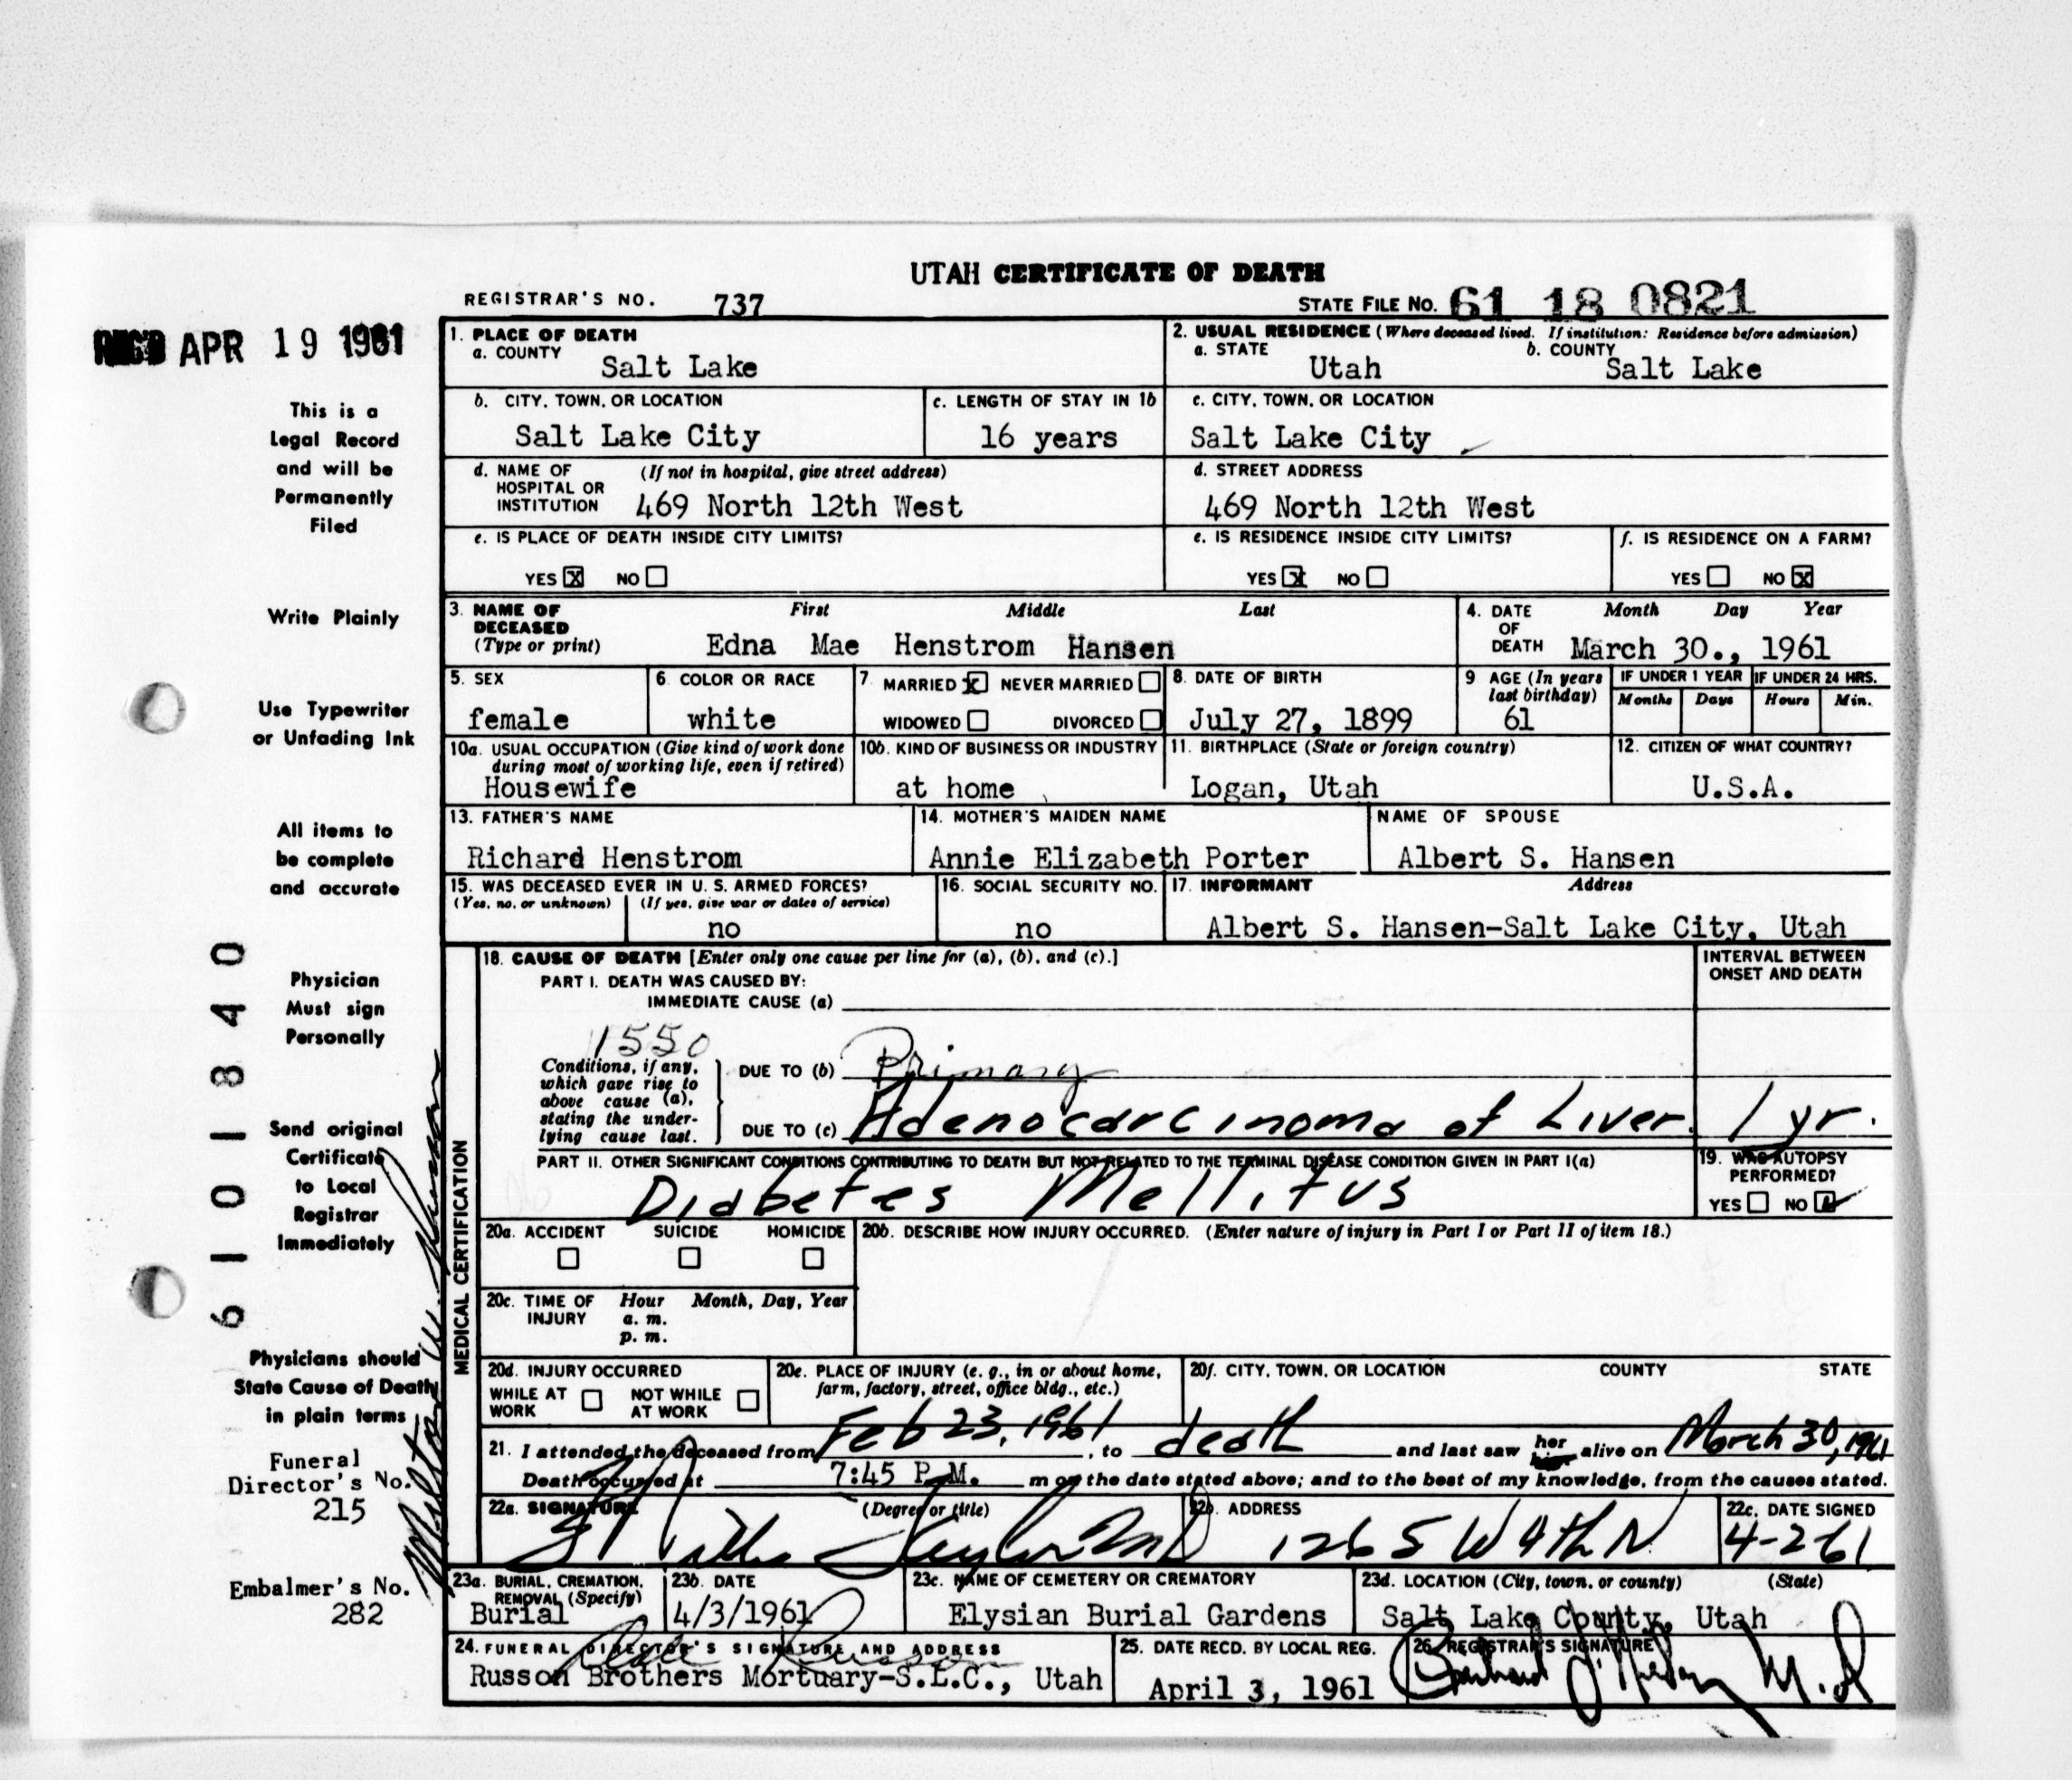 UTAH CERTIFICATE OF DEATH
REGISTRAR'S NO. 737
STATE FILE NO. 61 18 0821
REC'D APR 19 1961
This is a
Legal Record
and will be
Permanently
Filed
Write Plainly
Use Typewriter
or Unfading Ink
All items to
be complete
and accurate
Physician
Must sign
Personally
Send original
Certificate
to Local
Registrar
Immediately
Physicians should
State Cause of Death
in plain terms
Funeral
Director's No.
215
Embalmer's No.
282
6101840
1. PLACE OF DEATH
a. COUNTY
Salt Lake
2. USUAL RESIDENCE (Where deceased lived. If institution: Residence before admission)
a. STATE b. COUNTY
Utah Salt Lake
b. CITY, TOWN, OR LOCATION
Salt Lake City
c. LENGTH OF STAY IN 1b
16 years
c. CITY, TOWN, OR LOCATION
Salt Lake City
d. NAME OF (If not in hospital, give street address)
HOSPITAL OR
INSTITUTION 469 North 12th West
d. STREET ADDRESS
469 North 12th West
e. IS PLACE OF DEATH INSIDE CITY LIMITS?
YES X NO
e. IS RESIDENCE INSIDE CITY LIMITS?
YES X NO
f. IS RESIDENCE ON A FARM?
YES NO X
3. NAME OF First Middle Last
DECEASED
(Type or print) Edna Mae Henstrom Hansen
4. DATE Month Day Year
OF
DEATH March 30., 1961
5. SEX
female
6. COLOR OR RACE
white
7. MARRIED X NEVER MARRIED
WIDOWED DIVORCED
8. DATE OF BIRTH
July 27, 1899
9 AGE (In years
last birthday)
61
IF UNDER 1 YEAR IF UNDER 24 HRS.
Months Days Hours Min.
10a. USUAL OCCUPATION (Give kind of work done
during most of working life, even if retired)
Housewife
10b. KIND OF BUSINESS OR INDUSTRY
at home
11. BIRTHPLACE (State or foreign country)
Logan, Utah
12. CITIZEN OF WHAT COUNTRY?
U.S.A.
13. FATHER'S NAME
Richard Henstrom
14. MOTHER'S MAIDEN NAME
Annie Elizabeth Porter
NAME OF SPOUSE
Albert S. Hansen
15. WAS DECEASED EVER IN U. S. ARMED FORCES?
(Yes, no, or unknown) (If yes, give war or dates of service)
no
16. SOCIAL SECURITY NO.
no
17. INFORMANT Address
Albert S. Hansen-Salt Lake City, Utah
MEDICAL CERTIFICATION
18. CAUSE OF DEATH [Enter only one cause per line for (a), (b), and (c).]
INTERVAL BETWEEN
ONSET AND DEATH
PART I. DEATH WAS CAUSED BY:
IMMEDIATE CAUSE (a)
1550
Conditions, if any,
which gave rise to
above cause (a),
stating the under-
lying cause last.
DUE TO (b) Primary
DUE TO (c) Adenocarcinoma of Liver. 1 yr.
PART II. OTHER SIGNIFICANT CONDITIONS CONTRIBUTING TO DEATH BUT NOT RELATED TO THE TERMINAL DISEASE CONDITION GIVEN IN PART I(a)
Diabetes Mellitus
19. WAS AUTOPSY
PERFORMED?
YES NO
20a. ACCIDENT SUICIDE HOMICIDE
20b. DESCRIBE HOW INJURY OCCURRED. (Enter nature of injury in Part I or Part II of item 18.)
20c. TIME OF Hour Month, Day, Year
INJURY a. m.
p. m.
20d. INJURY OCCURRED
WHILE AT WORK NOT WHILE AT WORK
20e. PLACE OF INJURY (e. g., in or about home,
farm, factory, street, office bldg., etc.)
20f. CITY, TOWN, OR LOCATION COUNTY STATE
21. I attended the deceased from Feb 23, 1961, to death and last saw her him alive on March 30, 1961
Death occurred at 7:45 P.M. m on the date stated above; and to the best of my knowledge, from the causes stated.
22a. SIGNATURE (Degree or title)
22b. ADDRESS
1265 W 4th N
22c. DATE SIGNED
4-2-61
23a. BURIAL, CREMATION,
REMOVAL (Specify)
Burial
23b. DATE
4/3/1961
23c. NAME OF CEMETERY OR CREMATORY
Elysian Burial Gardens
23d. LOCATION (City, town, or county) (State)
Salt Lake County, Utah
24. FUNERAL DIRECTOR'S SIGNATURE AND ADDRESS
Russon Brothers Mortuary-S.L.C., Utah
25. DATE RECD. BY LOCAL REG.
April 3, 1961
26. REGISTRAR'S SIGNATURE